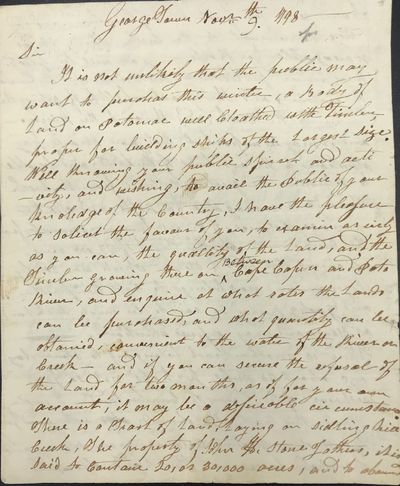 George Town Novr. 9th. 1798
Sir
It is not unlikely that the public may
want to purchas this winter, a Body of
Land on Potomac well Cloathed with Timber,
proper for building ships of the Largest size.
Well knowing your publick spirit and acti
-vity, and wishing, to avail the Public of your
knoledge of the Country, I have the pleasure
to solicit the favour of you, to examin as early
as you can, the quality of the Land, and the
Timber growing there on Between Cape Capon and Poto
River, and enquire at what rates the Lands
can be purchased, and what quantity can be
obtained, convenient to the water of the River or
Creek – and if you can secure the refusal of
the Land for two months, as of for your own
account, it may be a desireable circumstance
There is a Tract of Land, laying on Sidling Hill
Creek, the property of John H. Stone & others, it is
said to Contain 20, or 30,000 acres, and to abound